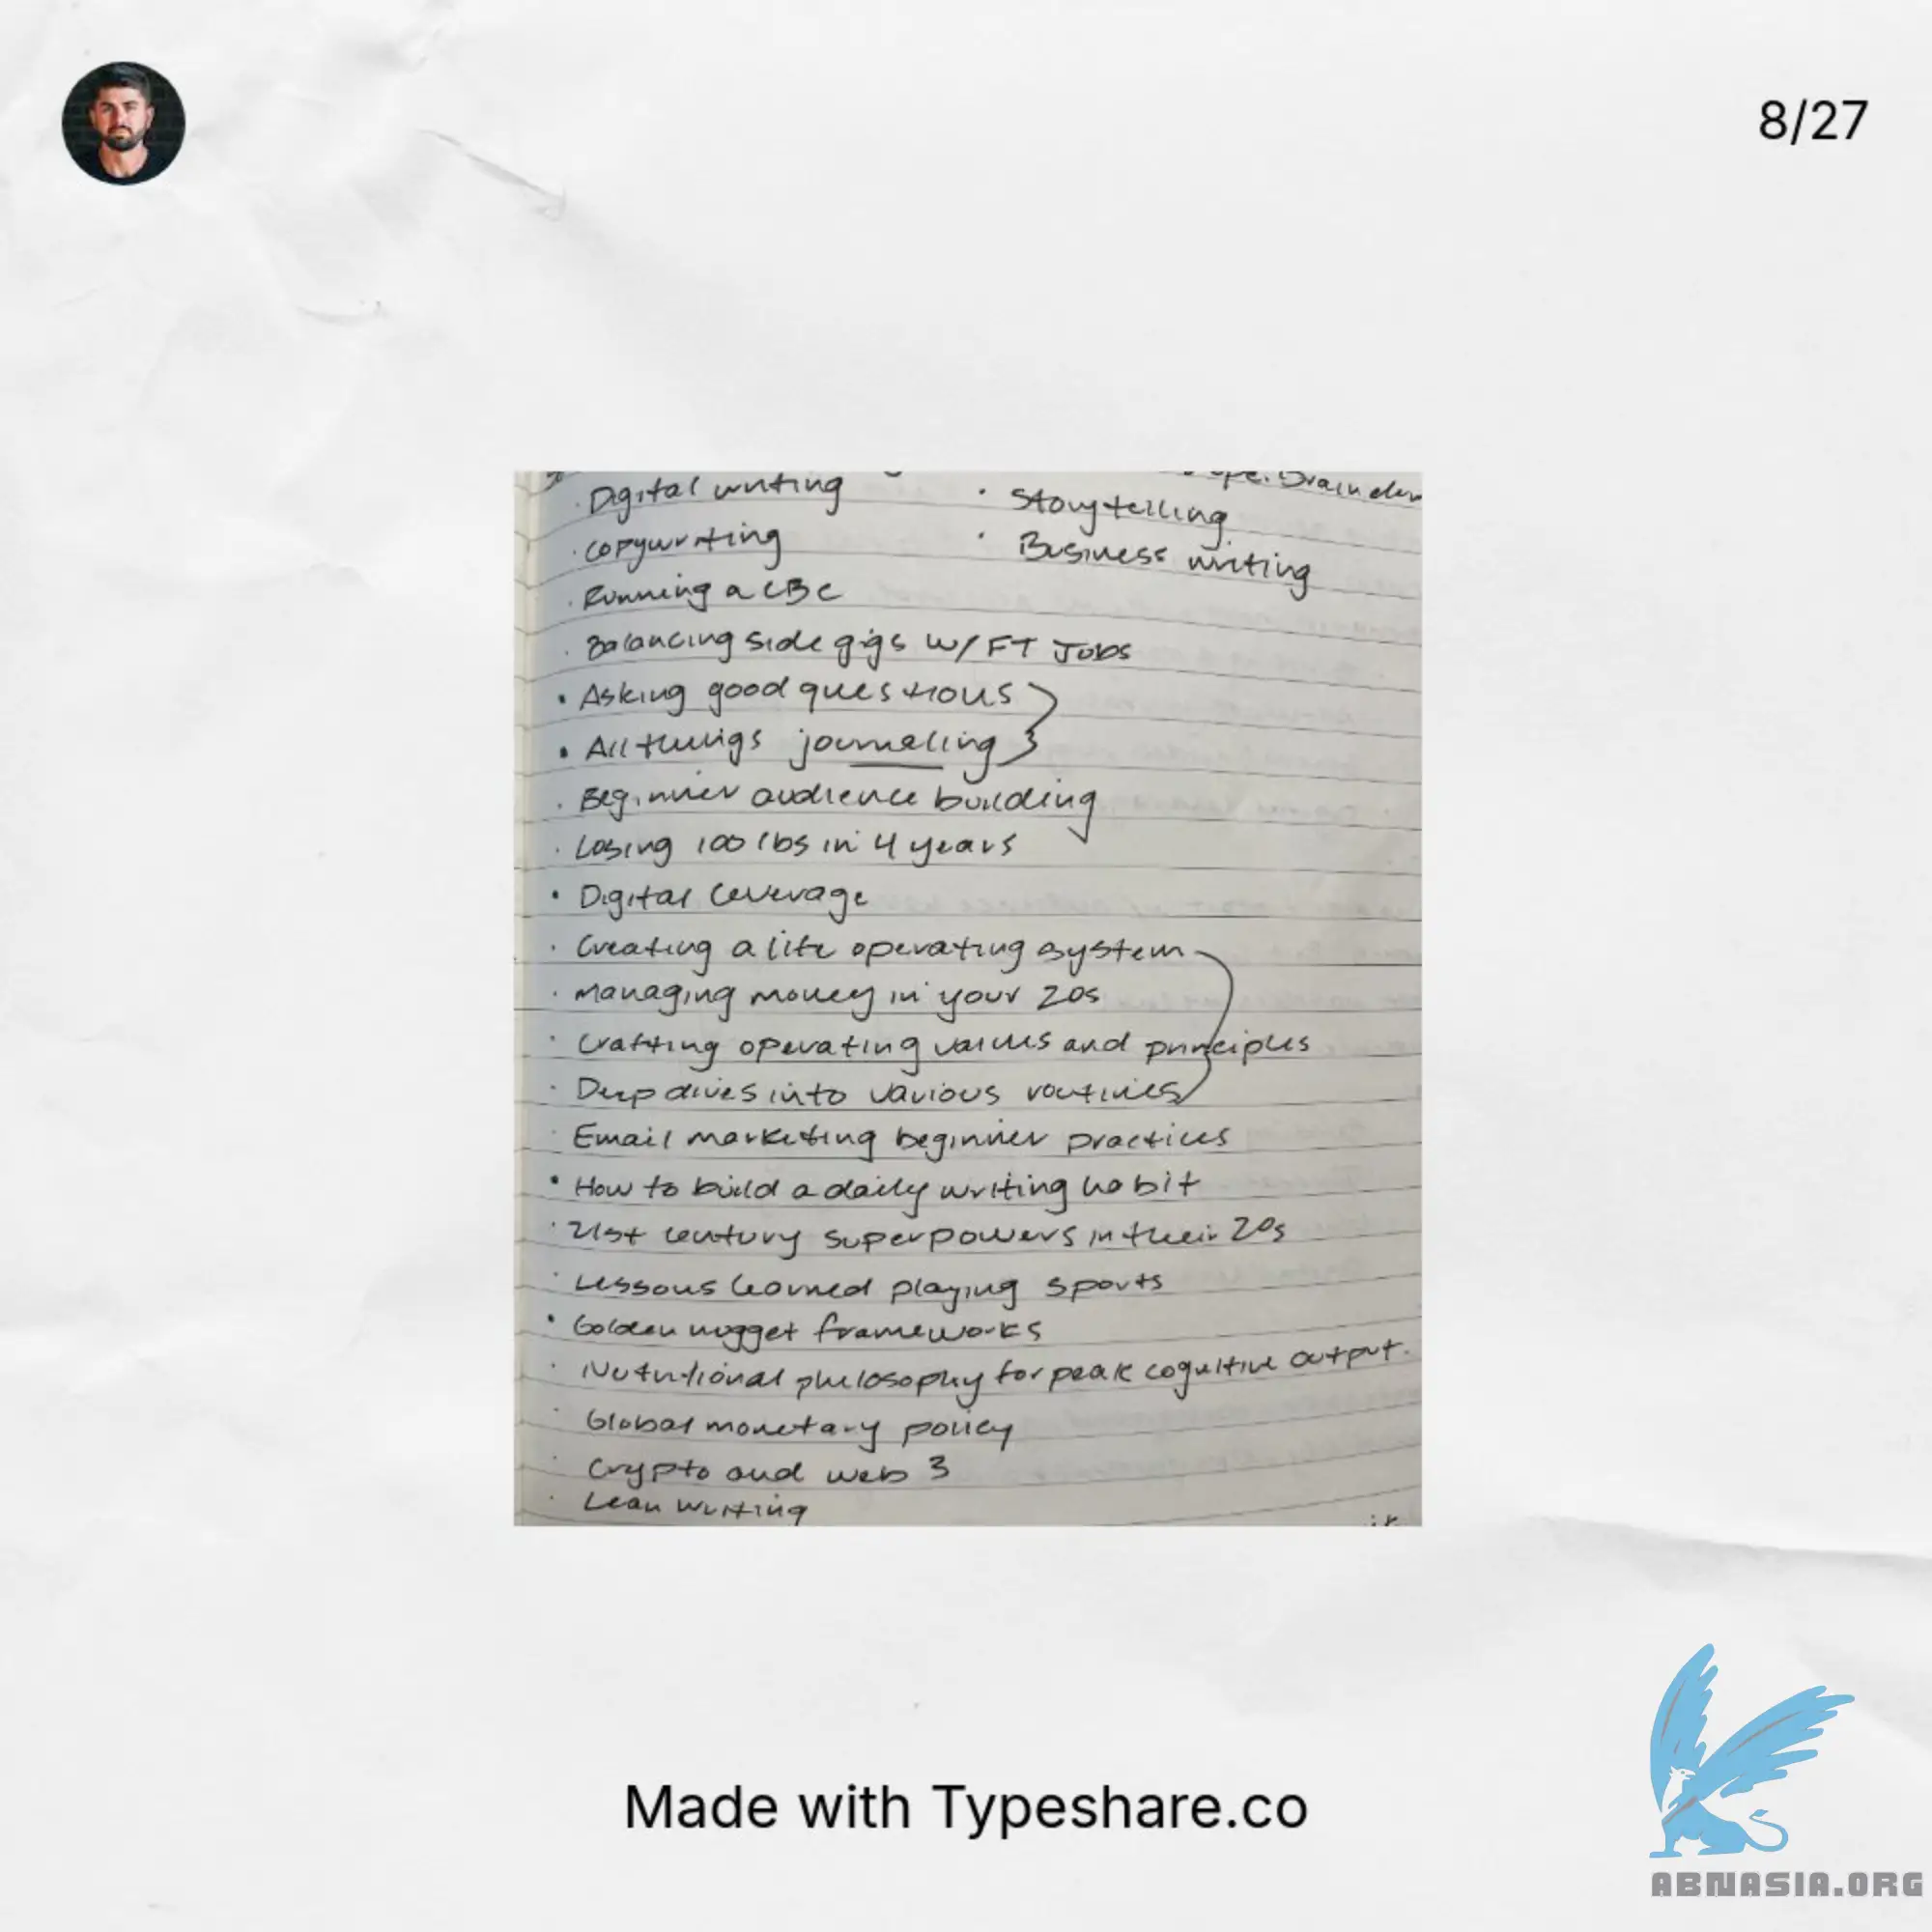 8/27
Brain
Digital writing
Storytelling
copywriting
Business writing
Running a CBC
Balancing side gigs w/ FT Jobs
Asking good questions
All things journaling
Beginner audience building
Losing 100 lbs in 4 years
Digital Leverage
Creating a life operating system
Managing money in your 20s
Crafting operating values and principles
Deep dives into various routines
Email marketing beginner practices
How to build a daily writing habit
21st century superpowers in their 20s
Lessons learned playing sports
Golden nugget frameworks
Nutritional philosophy for peak cognitive output.
Global monetary policy
Crypto and web 3
Lean writing
Made with Typeshare.co
ABNASIA.ORG